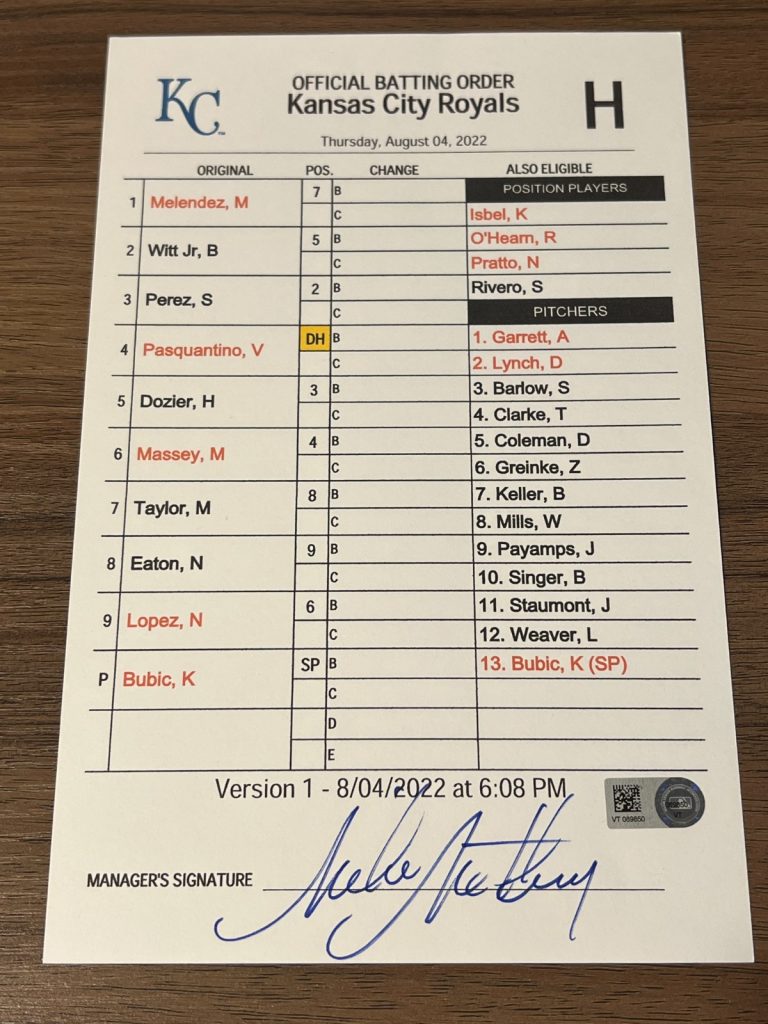 KC
OFFICIAL BATTING ORDER
Kansas City Royals
H
Thursday, August 04, 2022
ORIGINAL POS. CHANGE ALSO ELIGIBLE
1 Melendez, M 7 B POSITION PLAYERS
C Isbel, K
2 Witt Jr, B 5 B O'Hearn, R
C Pratto, N
3 Perez, S 2 B Rivero, S
C PITCHERS
4 Pasquantino, V DH B 1. Garrett, A
C 2. Lynch, D
5 Dozier, H 3 B 3. Barlow, S
C 4. Clarke, T
6 Massey, M 4 B 5. Coleman, D
C 6. Greinke, Z
7 Taylor, M 8 B 7. Keller, B
C 8. Mills, W
8 Eaton, N 9 B 9. Payamps, J
C 10. Singer, B
9 Lopez, N 6 B 11. Staumont, J
C 12. Weaver, L
P Bubic, K SP B 13. Bubic, K (SP)
C
D
E
Version 1 - 8/04/2022 at 6:08 PM
MANAGER'S SIGNATURE